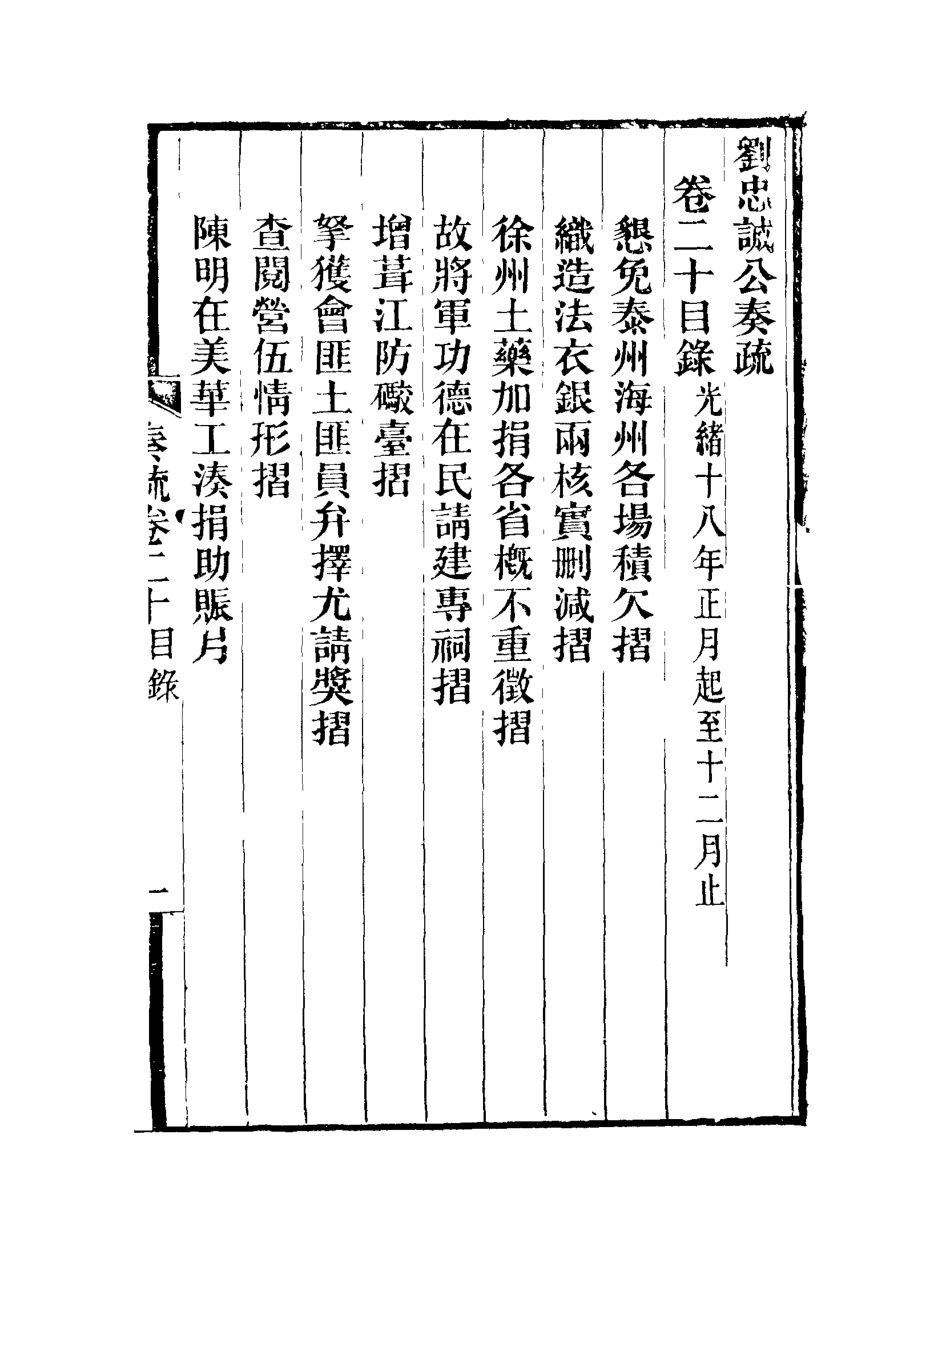 劉忠誠公奏疏
卷二十目錄光緒十八年正月起至十二月止
懇免泰州海州各場積欠摺
織造法衣銀兩核實刪減摺
徐州土藥加捐各省概不重徵摺
故將軍功德在民請建專祠摺
增葺江防礮臺摺
拏獲會匪土匪員弁擇尤請獎摺
查閱營伍情形摺
陳明在美華工湊捐助賑片
奏疏卷二十目錄
一